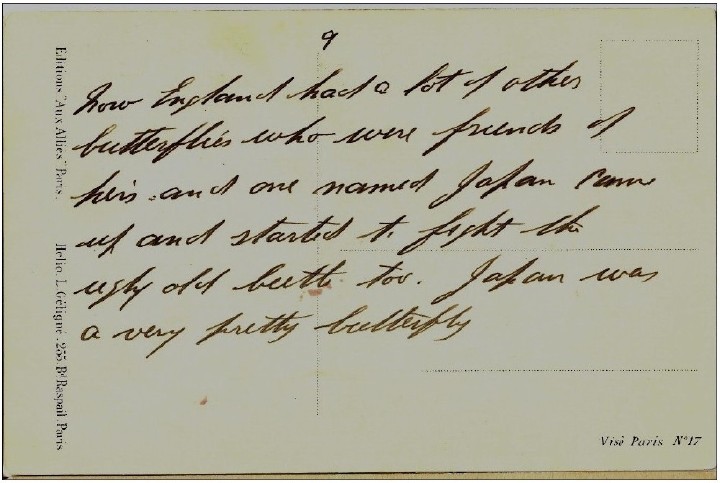 9
Now England had a lot of other
butterflies who were friends of
hers and one named Japan came
up and started to fight the
ugly old beetle too. Japan was
a very pretty butterfly
Editions "Aux Alliés" Paris.
Helio. L. Géligné. 255. Bd Raspail Paris
Visé Paris N°17